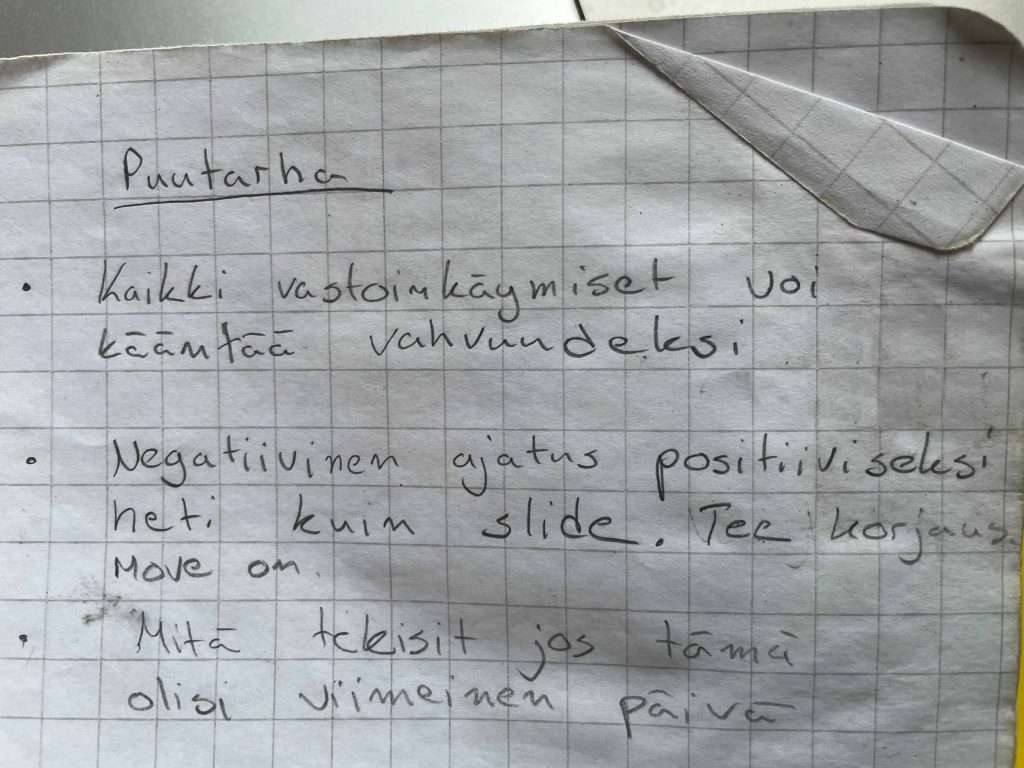 Puutarha
• Kaikki vastoinkäymiset voi
kääntää vahvuudeksi
• Negatiivinen ajatus positiiviseksi
heti kuin slide. Tee korjaus.
Move on.
• Mitä tekisit jos tämä
olisi viimeinen päivä